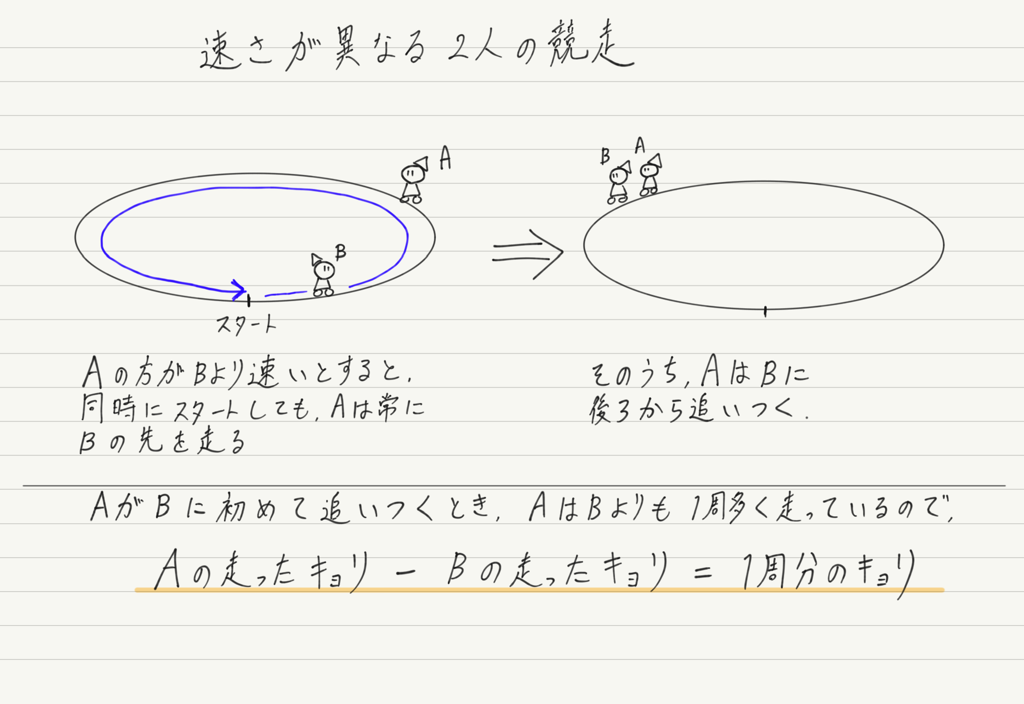 速さが異なる2人の競走
A
B
スタート
B
A
Aの方がBより速いとすると,
同時にスタートしても,Aは常に
Bの先を走る
そのうち,AはBに
後ろから追いつく.
AがBに初めて追いつくとき,AはBよりも1周多く走っているので,
Aの走ったキョリ - Bの走ったキョリ = 1周分のキョリ